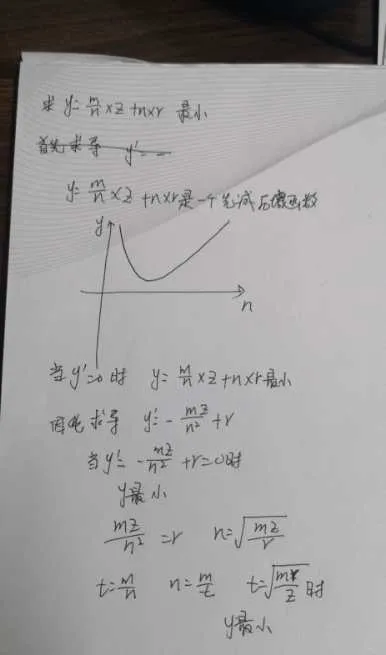 求 y=m/n×z+n×r 最小
首先求导 y'=
y=m/n×z+n×r是一个先减后增函数
y
n
当y'=0时 y=m/n×z+n×r最小
因此求导 y'=-mz/n²+r
当y'=-mz/n²+r=0时
y最小
mz/n²=r n=√(mz/r)
t=m/n n=m/t t=√(mr/z)时
y最小